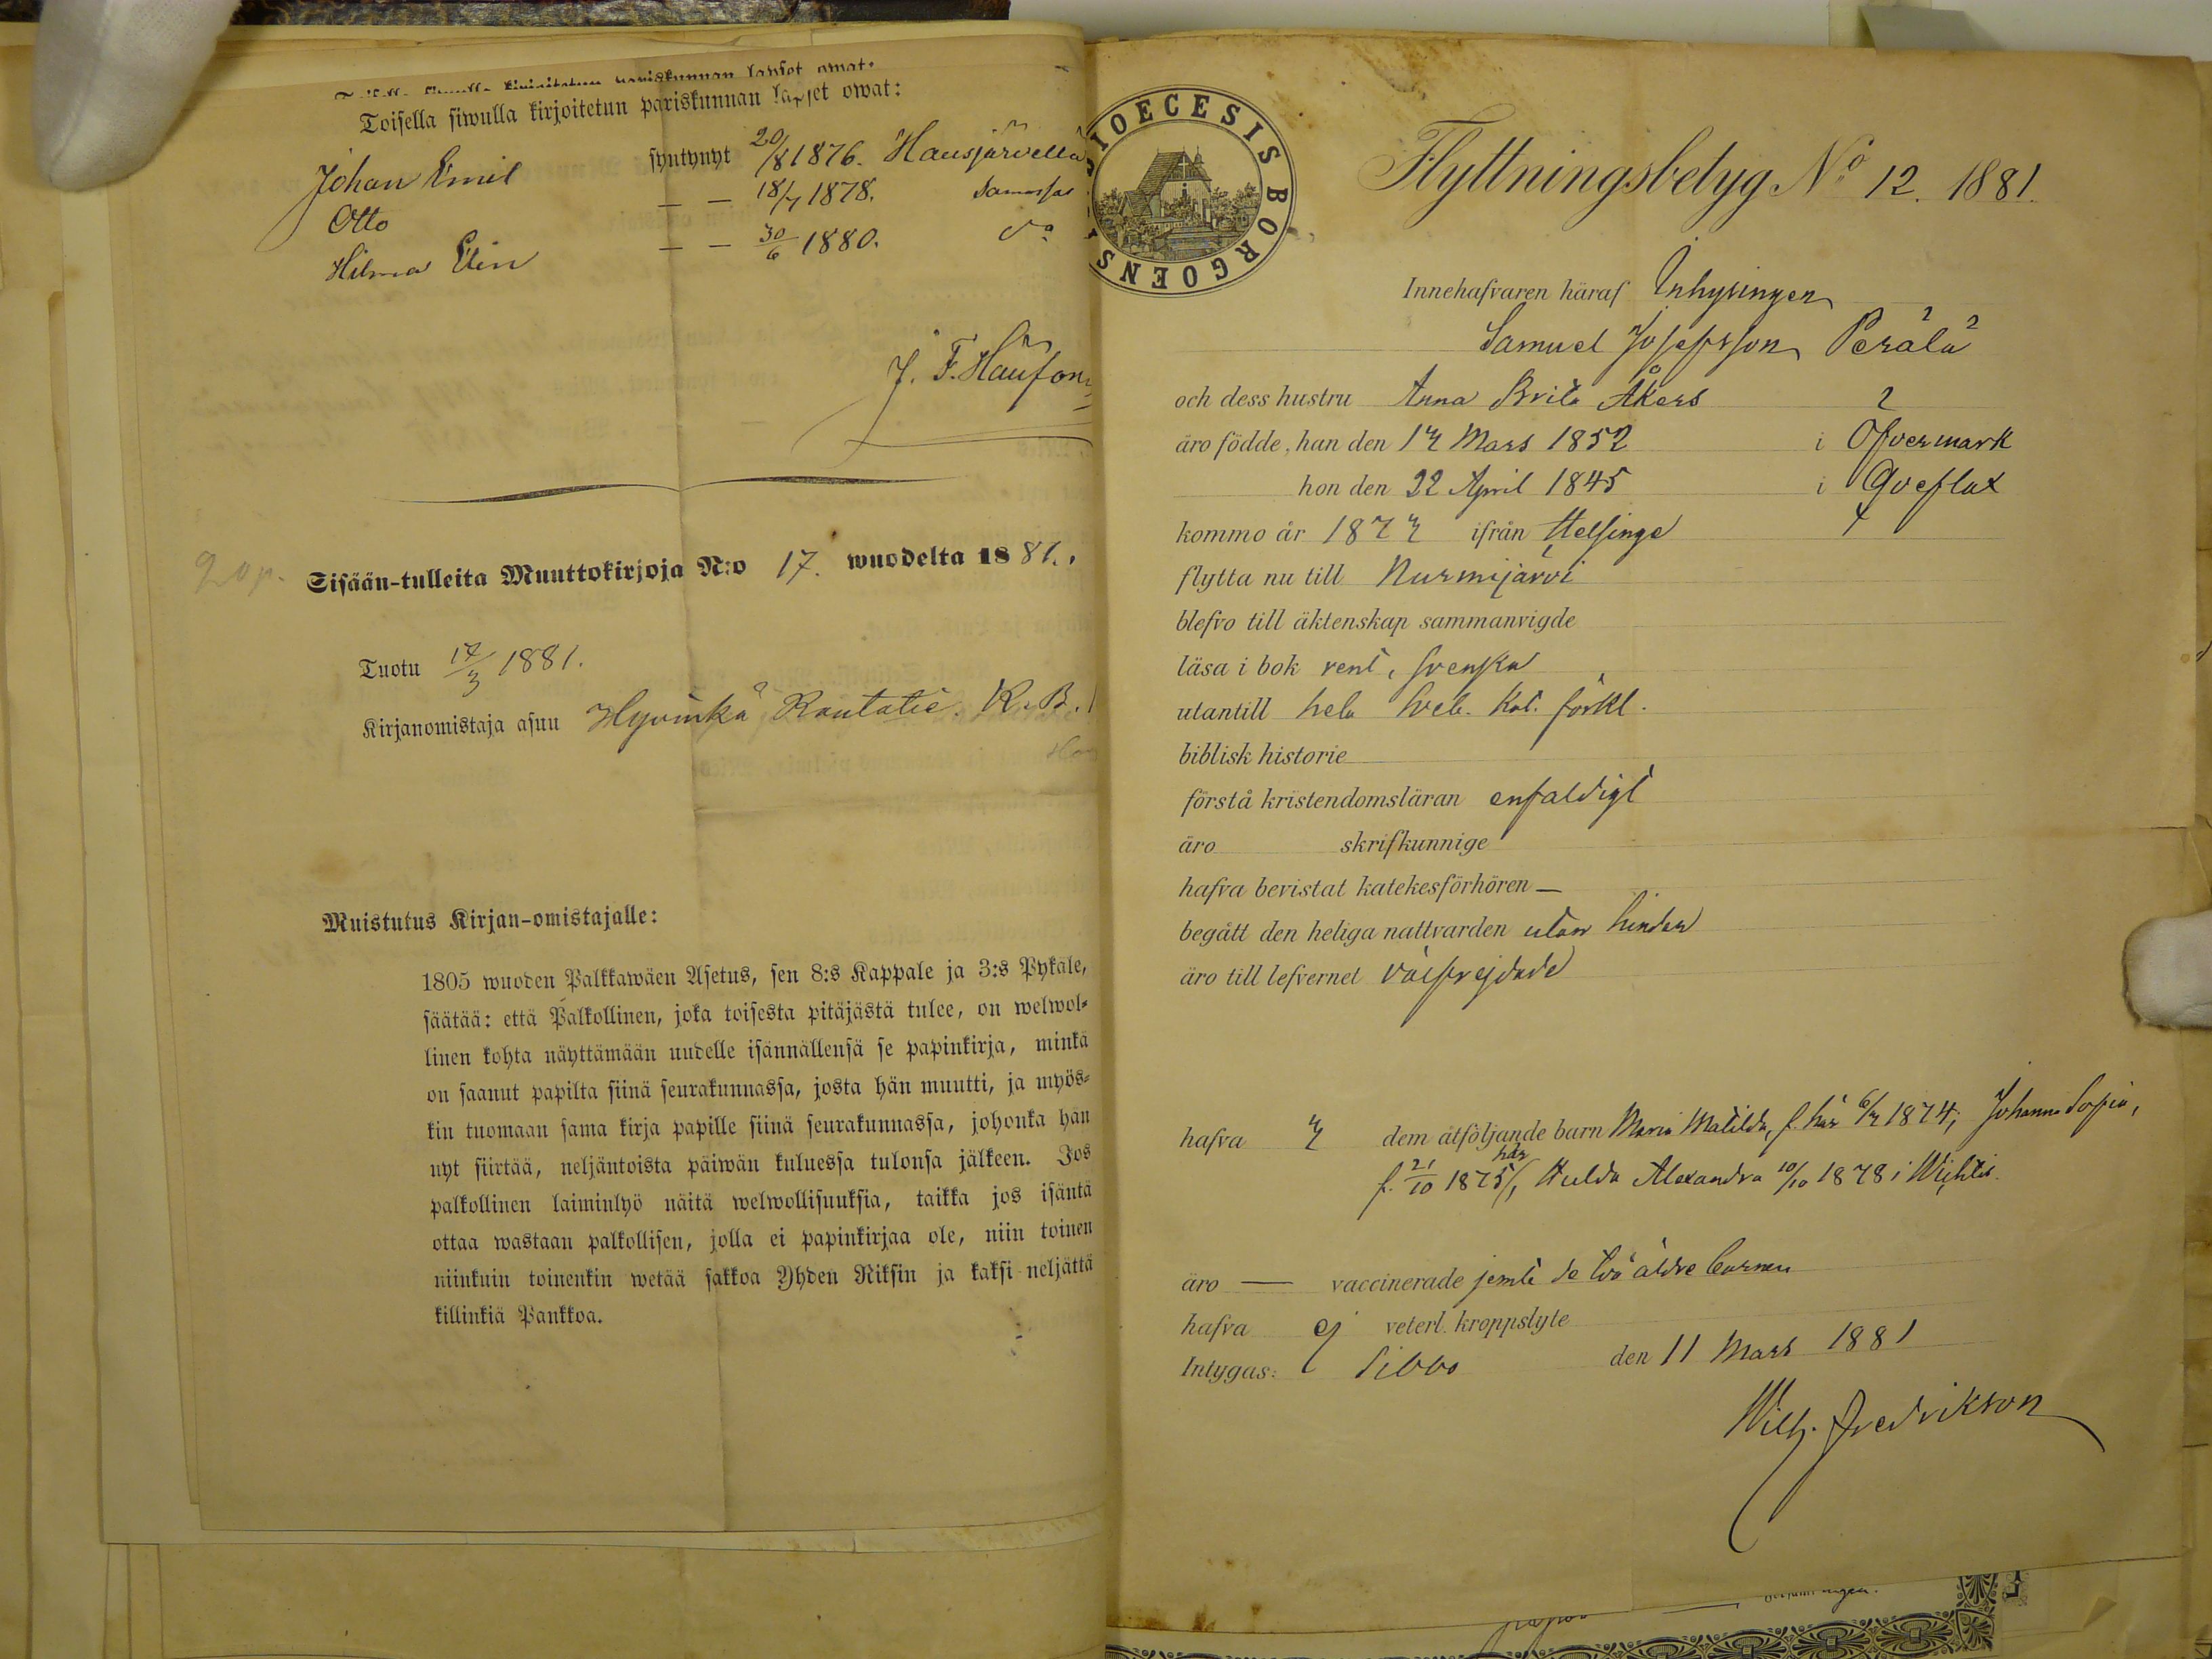 Toisella siwulla kirjoitetun pariskunnan lapset owat:
Toisella siwulla kirjoitetun pariskunnan lapset owat:
Johan Emil syntynyt 20/8 1876. Hausjärvellä
Otto — — 18/7 1878. samassa
Hilma Elin — — 30/6 1880. do
20 p.
Sisään-tulleita Muuttokirjoja N:o 17. wuodelta 1881.
Tuotu 17/3 1881.
Kirjanomistaja asuu Hyvinkä Rautatie. R. B.
Muistutus Kirjan-omistajalle:
1805 wuoden Palkkawäen Asetus, sen 8:s Kappale ja 3:s Pykale,
säätää: että Palkollinen, joka toisesta pitäjästä tulee, on welwol-
linen kohta näyttämään uudelle isännällensä se papinkirja, minkä
on saanut papilta siinä seurakunnassa, josta hän muutti, ja myös-
kin tuomaan sama kirja papille siinä seurakunnassa, johonka hän
nyt siirtää, neljäntoista päiwän kuluessa tulonsa jälkeen. Jos
palkollinen laiminlyö näitä welwollisuuksia, taikka jos isäntä
ottaa wastaan palkollisen, jolla ei papinkirjaa ole, niin toinen
niinkuin toinenkin wetää sakkoa Yhden Riksin ja kaksi neljättä
killinkiä Pankkoa.
DIOECESIS BORGOENSIS
Flyttningsbetyg No 12. 1881.
Innehafvaren häraf Inhysingen
Samuel Josefsson Perälä
och dess hustru Anna Brita Åkers
äro födde, han den 13 Mars 1852 i Öfvermark
hon den 22 April 1845 i Qveflax
kommo år 1873 ifrån Helsinge
flytta nu till Nurmijärvi
blefvo till äktenskap sammanvigde
läsa i bok rent, svenska
utantill hela Sveb. kat. förkl.
biblisk historie
förstå kristendomsläran enfaldigt
äro skrifkunnige
hafva bevistat katekesförhören —
begått den heliga nattvarden utan hinder
äro till lefvernet välfrejdade
hafva 3 dem åtföljande barn Maria Matilda, f. här 6/3 1874; Johanna Sofia,
f. 21/10 1875 här, Hulda Alexandra 10/10 1878 i Wichtis.
äro — vaccinerade jemte de två äldre barnen
hafva ej veterl. kroppslyte
Intygas: Sibbo den 11 Mars 1881
Wilh. Fredrikson